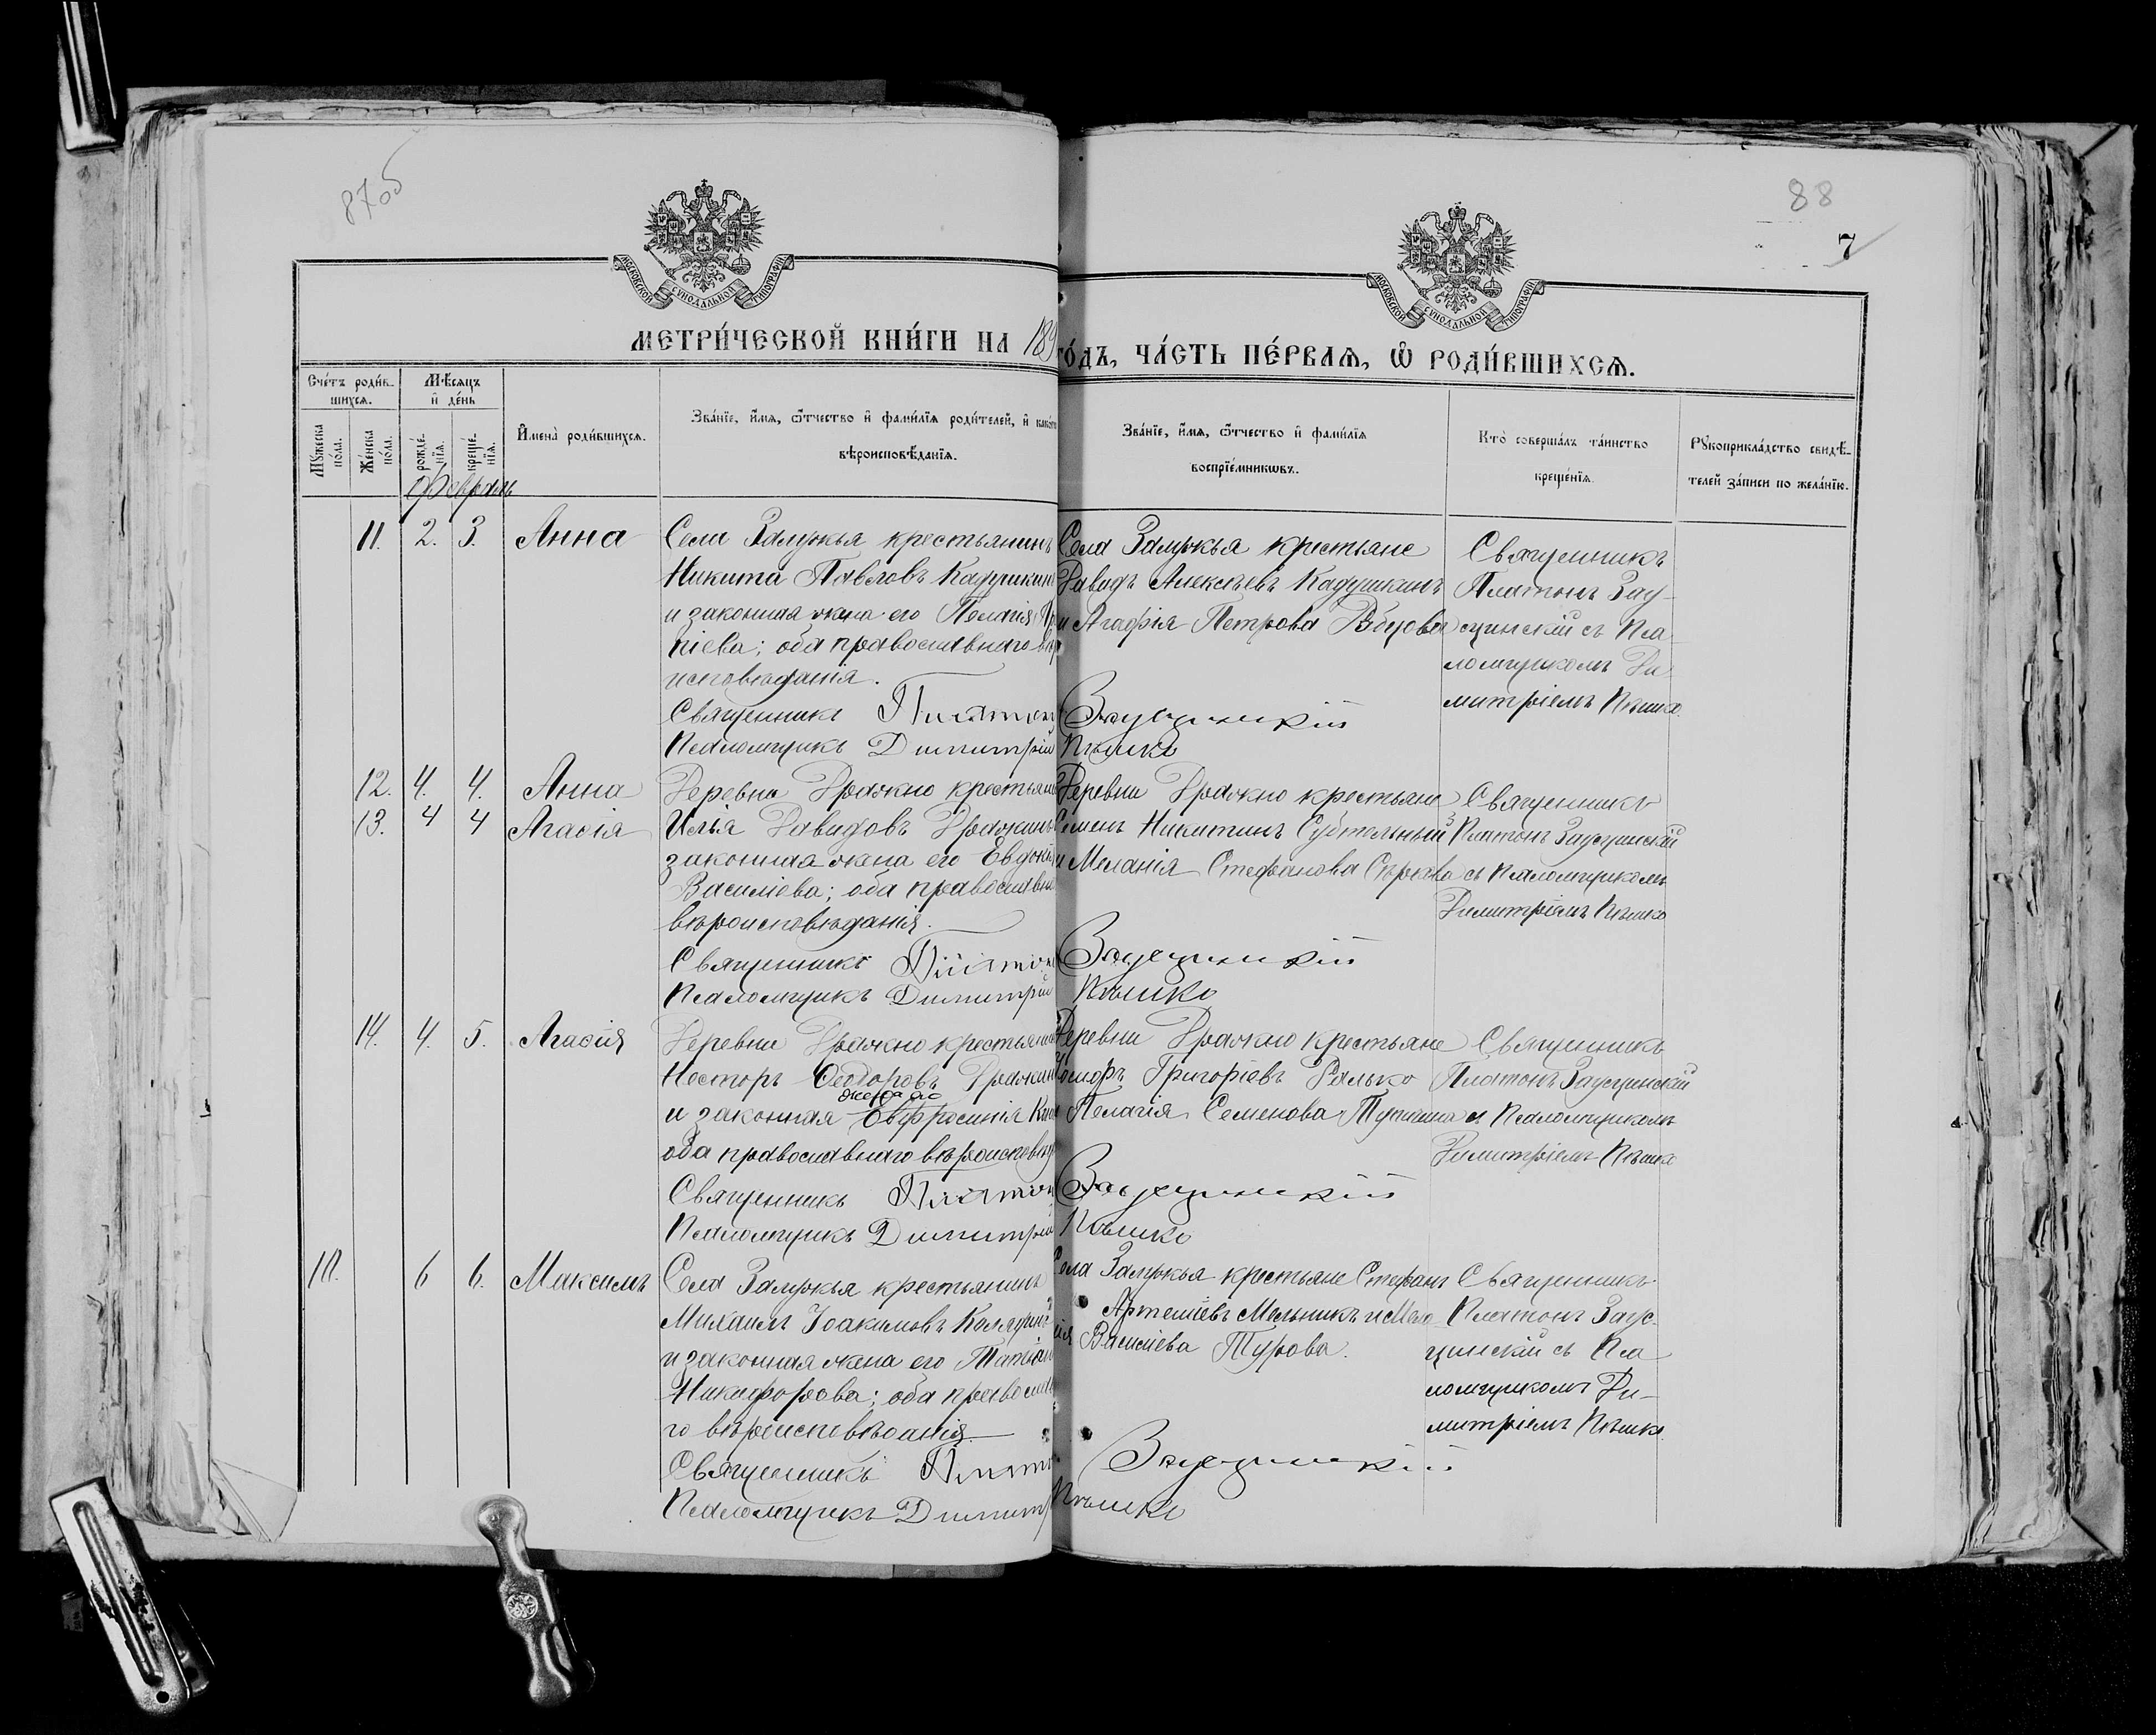 87об
88
7
МОСКОВСКОЙ СѴНОДАЛЬНОЙ ТИПОГРАФІИ
МОСКОВСКОЙ СѴНОДАЛЬНОЙ ТИПОГРАФІИ
МЕТРИ́ЧЕСКОЙ КНИ́ГИ НА 189
го́дъ, ча́сть пе́рваѧ, ѡ҆ роди́вшихсѧ.
Сче́тъ роди́в-
шихсѧ.
Мѣ́сѧцъ
и҆ де́нь
Мꙋ́жеска по́ла.
Же́нска по́ла.
рожде́-нїѧ.
креще́-нїѧ.
И҆мена̀ роди́вшихсѧ.
Зва́нїе, и҆́мѧ, ѻ҆́тчество и҆ фами́лїѧ роди́телей, и҆ како́гѡ
вѣроисповѣ́данїѧ.
Зва́нїе, и҆́мѧ, ѻ҆́тчество и҆ фами́лїѧ
воспрїе́мникѡвъ.
Кто̀ соверша́лъ та́инство
креще́нїѧ.
Рꙋкоприкла́дство свидѣ́-
телей за́писи по жела́нїю.
Февраль
11. 2. 3. Анна
Села Залужья крестьянинъ
Никита Павловъ Кадушкинъ
и законная жена его Пелагія
піева; оба православнаго
исповѣданія.
Священникъ Платон
Псаломщикъ Димитрій
Села Залужья крестьяне
Давидъ Алексѣевъ Кадушкинъ
и Агафія Петрова
Заусцинскій
Пѣшко
Священникъ
Платонъ Зау-
сцинскій съ Пса
ломщикомъ Ди
митріемъ Пѣшко
12. 4. 4. Анна
13. 4 4 Агафія
Деревни Дражно крестьян
Илья Давидовъ Дражин
законная жена его Евдокі
Василіева; оба православн
вѣроисповѣданія.
Священникъ Платон
Псаломщикъ Димитрій
Деревни Дражно крестьяне
Семенъ Никитинъ Субтельный
и Меланія Стефанова
Заусцинскій
Пѣшко
Священникъ
Платонъ Заусцинскій
съ Псаломщикомъ
Димитріемъ Пѣшко
14. 4. 5. Агафія
Деревни Дражно крестьянин
Несторъ Ѳеодоровъ Дражин
жена его
и законная Евфросинія
оба православнаго вѣроисповѣд
Священникъ Платон
Псаломщикъ Димитрій
Деревни Дражно крестьяне
Іосифъ Григоріевъ Рялько
Пелагія Семенова
Заусцинскій
Пѣшко
Священникъ
Платонъ Заусцинскій
съ Псаломщикомъ
Димитріемъ Пѣшко
10. 6 6. Максимъ
Села Залужья крестьянинъ
Михаилъ Іоакимовъ
и законная жена его Татіан
Никифорова; оба православна
го вѣроисповѣданія.
Священникъ Платон
Псаломщикъ Димит
Села Залужья крестьяне Стефанъ
Артеміевъ Мельникъ и Мела
нія Василіева Турова.
Заусцинскій
Пѣшко
Священникъ
Платонъ Заус-
цинскій съ Пса
ломщикомъ Ди-
митріемъ Пѣшко.